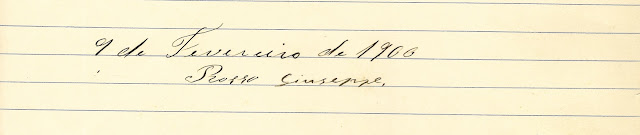 9 de Fevereiro de 1906
Rosso Giuseppe.